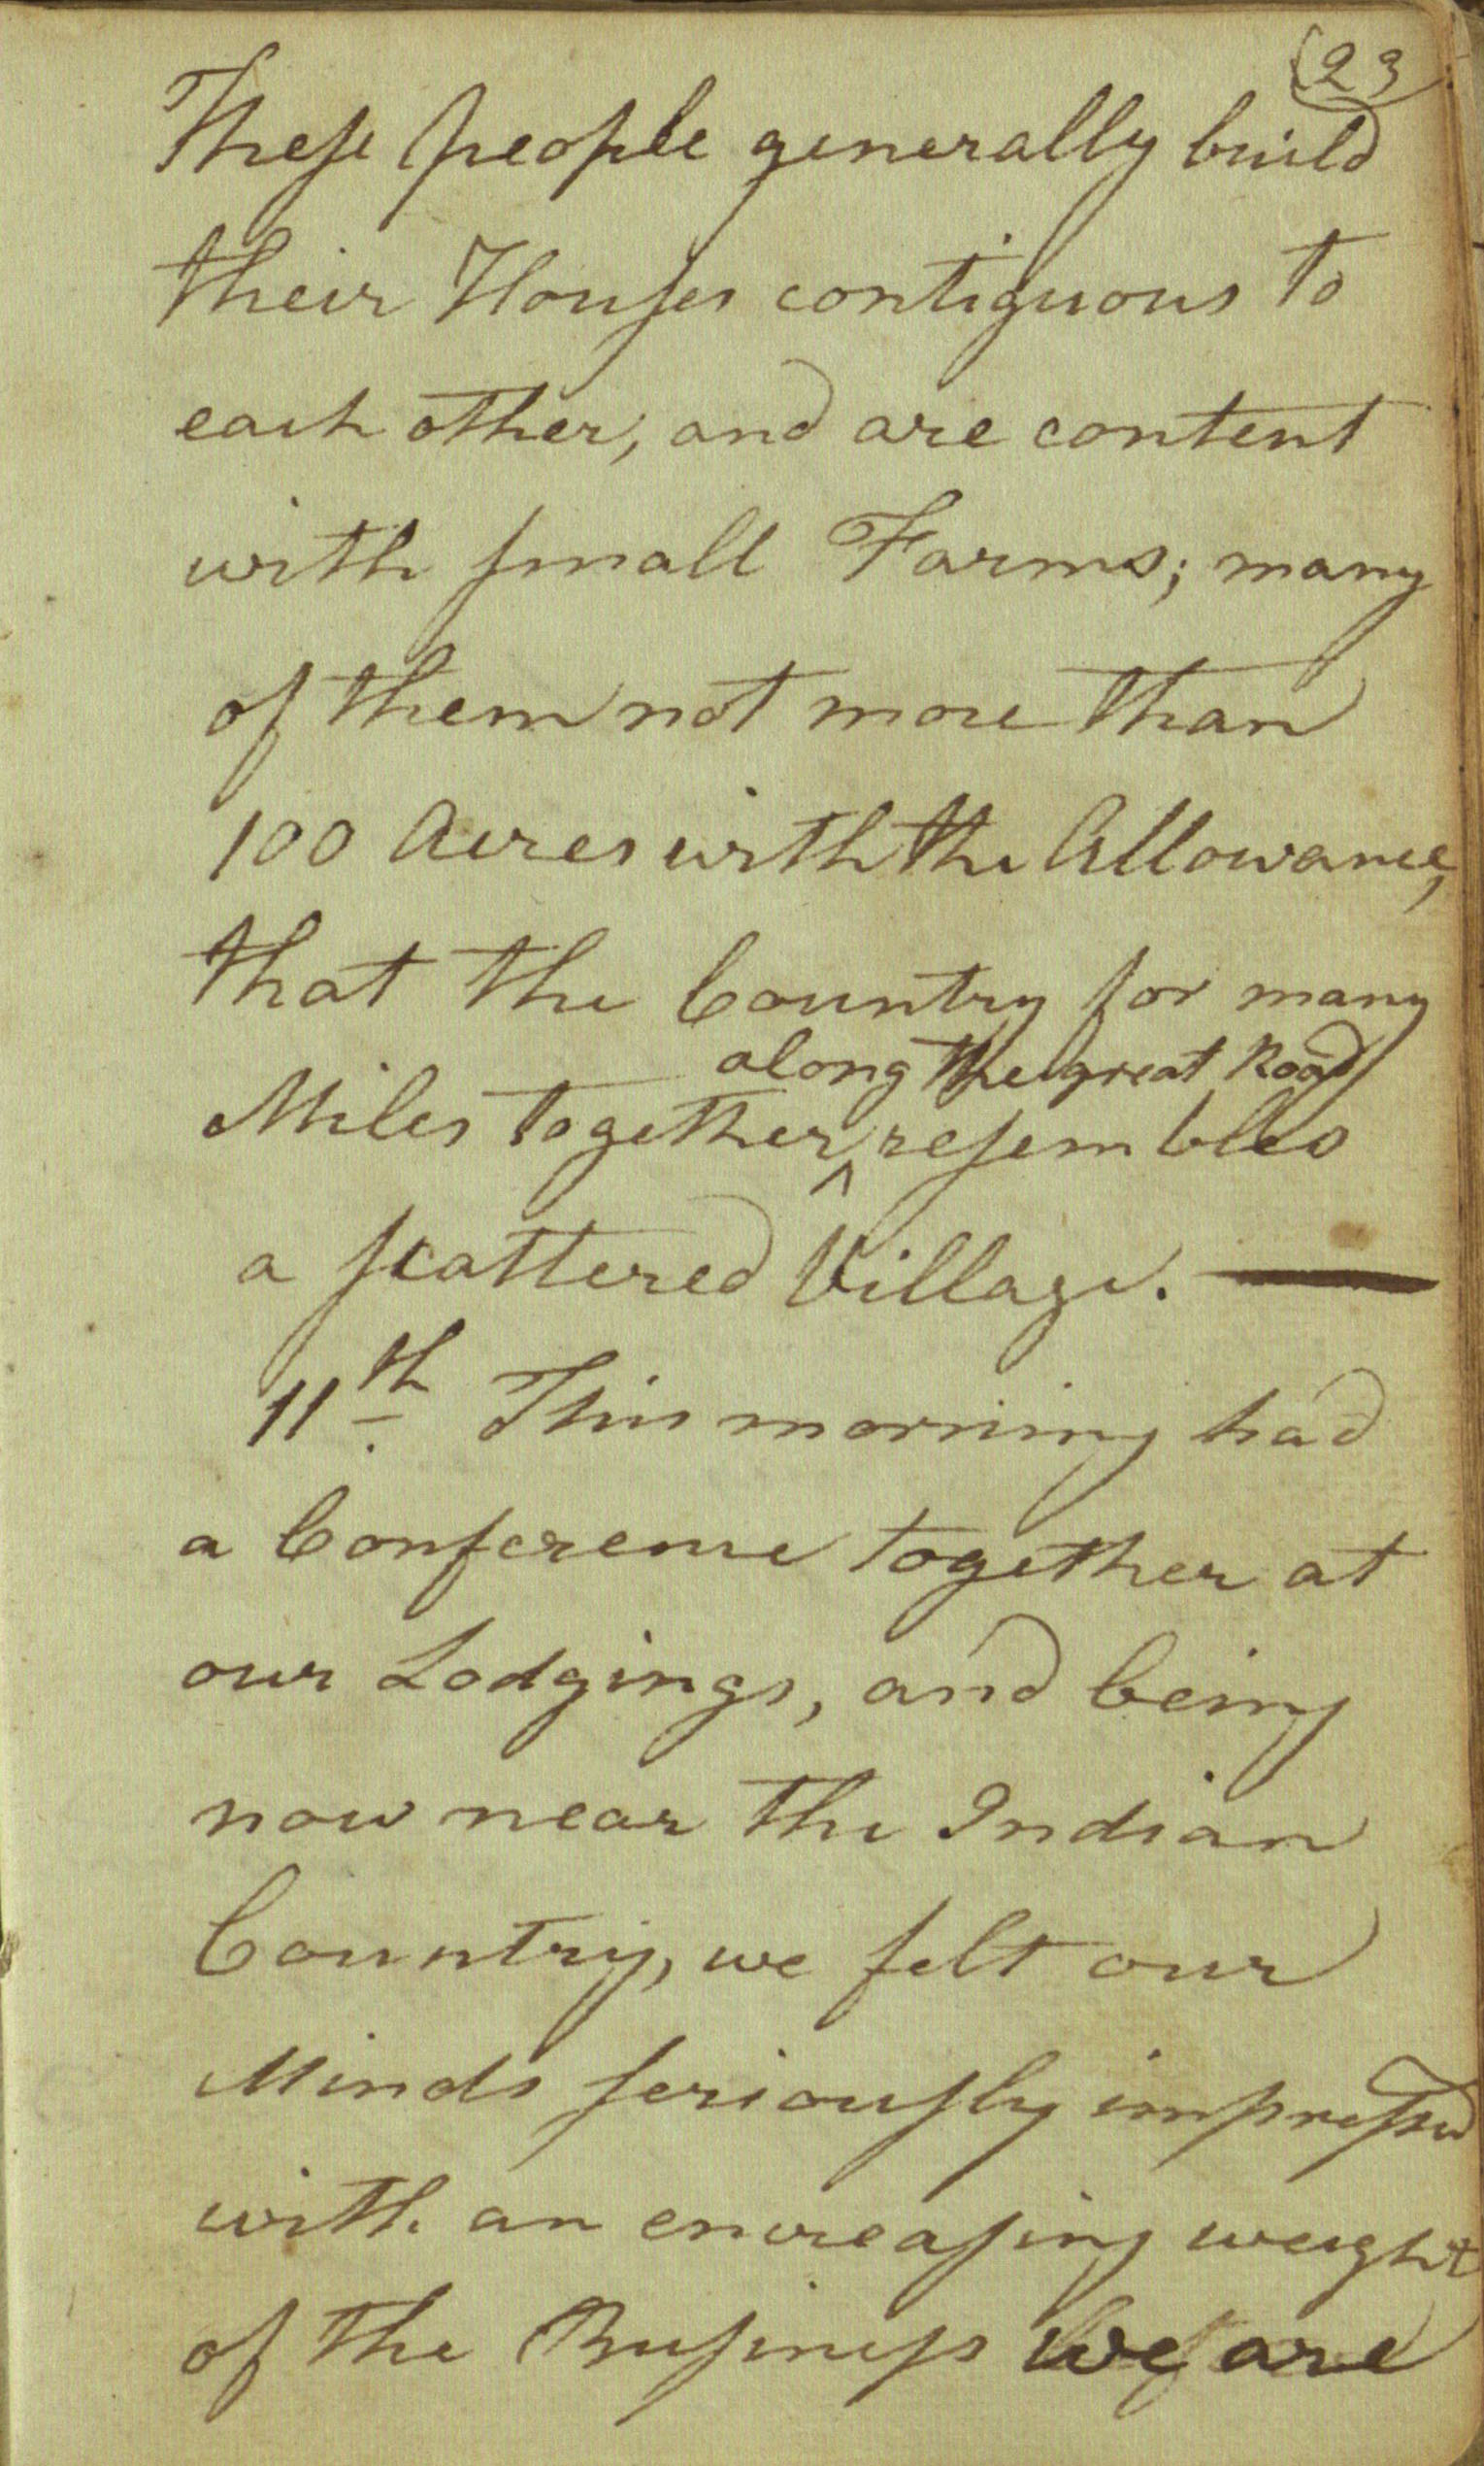 (23
These people generally build
their Houses contiguous to
each other, and are content
with small Farms; many
of them not more than
100 Acres with the Allowance,
that the Country for many
along the great Road
Miles together ^ resembles
a scattered Village. —
11th. This morning had
a Conference together at
our Lodgings, and being
now near the Indian
Country, we felt our
Minds seriously impressed
with an encreasing weight
of the Business we are